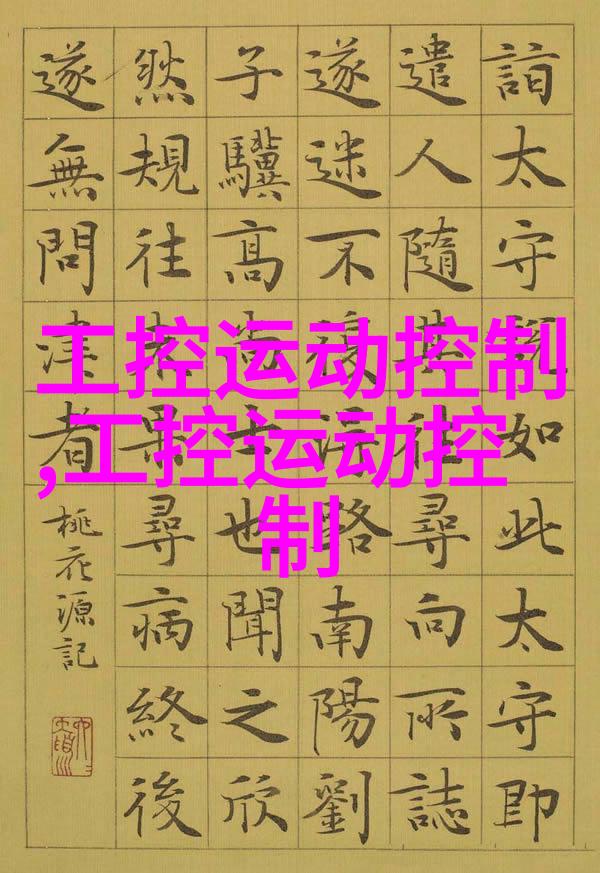 工控运动控制
,工控运动控
制
詣太守說如此太守即
遣人隨其往尋向所誌
遂迷不復得路南陽劉
子驥高尚士也聞之欣
然規往未果尋病終後
遂無問津者
桃花源記